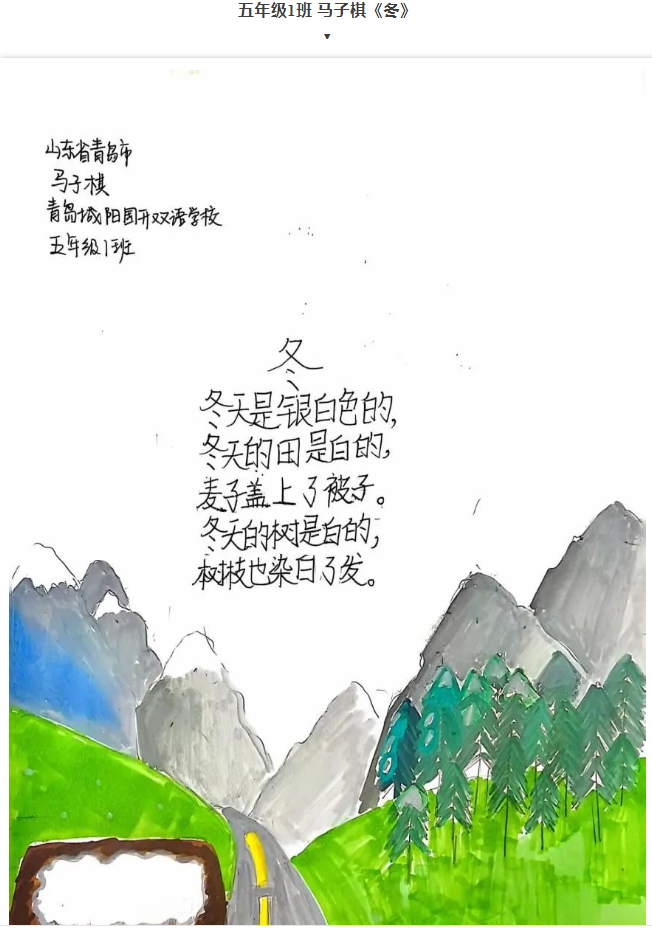 五年级1班 马子棋《冬》
山东省青岛市
马子棋
青岛城阳国开双语学校
五年级1班
冬
冬天是银白色的,
冬天的田是白的,
麦子盖上了被子。
冬天的树是白的,
树枝也染白了发。